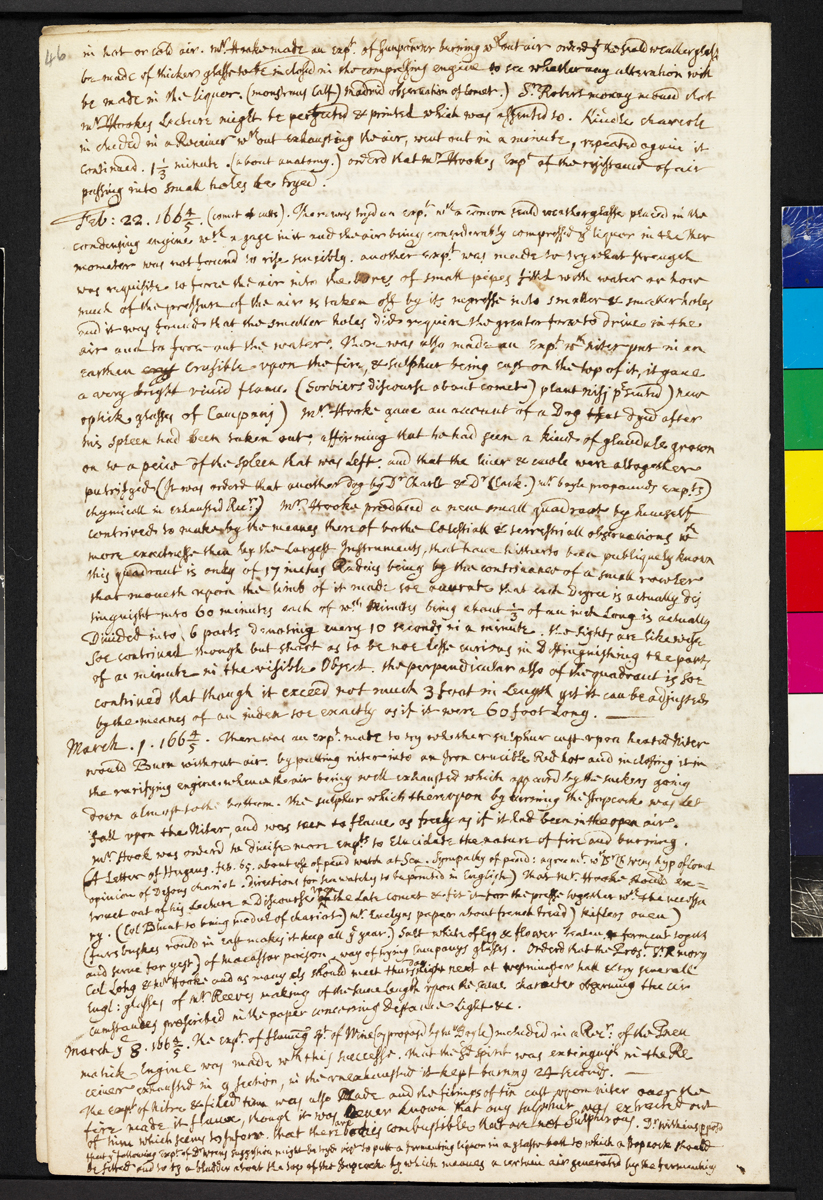 46
in hot or cold air. mr. Hooke made an expt. of Gunpowder burning wthout air orderd yt the seald weather glasse
be made of thicker glasse to be inclosed in the compressing engine to see whether any alteration will
be made in the liquor. (monstrous Calf) madrid observation of Comet.) Sr. Robert moray moved that
mr. Hookes Lecture might be perfected & printed which was assented to. Kindle charcole
in closed in a Receiver wthout exhausting the air, went out in a minute, repeated again it
continued. 1 1/3 minute. (about anatomy.) orderd that mr. Hookes Expt of the resistance of air
pressing into small holes be tryed.
Feb: 22. 166 4/5. (comet & cutts). There was tryd an expt. wth a comon seald weatherglasse placed in the
condensing engine wth a gage in it and the air being considerably compressed ye liquor in the ther
mometer was not found to rise sensibly. another Expt. was made to try what strength
was requisite to force the air into the bores of small pipes filld with water or how
much of the pressure of the air is taken off by its ingresse into smaller & smaller holes
and it was found that the smaller holes did require the greater force to drive in the
air and to force out the water. There was also made an Expt. wth niter put in an
earthen crusible vpon the fire, & sulphur being cast on the top of it, it gave
a very bright vivid flame. (Sorbiers discourse about comet) plant missi psented) new
optick glasses of Campanij) mr. Hooke gave an account of a Dog that dyed after
his spleen had been taken out, affirming that he had seen a kind of glandule grown
on to a peice of the spleen that was left. and that the liver & caule were altogether
putrifyed (It was orderd that another dog by Dr Charlt & Dr (lack.) mr boyle propounds expts)
chymicall in exhausted Recr.) mr. Hooke produced a new small quadrant by himself
contrived to make by the means thereof bothe Celestiall & terrestriall observations wth
more exactnesse then by the Largest Instruments, that have hitherto been publiquely known
this quadrant is only of 17 inches Radius being by the contrivance of a small rowler
that moveth upon the limb of it made soe accurate that each Degree is actually dis
tinguisht into 60 minutes each of wch minutes being about 1/3 of an inch Long is actually
Divided into 6 parts denoting every 10 seconds in a minute. the sights are likewise
soe contrived though but short as to be noe lesse curious in Distinguishing the parts
of a minute in the visible Object. the perpendicular also of the quadrant is soe
contrived that though it exceed not much 3 foot in Length yet it can be adjusted
by the means of an index soe exactly as if it were 60 foot long.
March. 1. 166 4/5. There was an expt. made to try whether sulphur cast vpon heated Niter
would Burn without air. by putting niter into an Iron crucible Red hot and inclosing it in
the rarifying engine. whence the air being well exhausted which appeard by the suckers going
down almost to the bottom. the sulphur which therevpon by turning the stopcock was let
fall vpon the Niter, and was seen to flame as freely as if it had been in the open air.
mr. Hook was orderd to devise more expts to Elucidate the nature of fire and burning.
(A Letter of Hugens. feb. 65. about of pend watch at Sea. Sympathy of pend: agree hyp of Comet
opinion of chariot. directions for sea watches to be printed in English) that mr. Hooke should ex=
tract out of his Lecture a Discourse vpon the Late Comet & fit it for the presse together wth the necessa
ry. (Col Blunt to bring modul of chariot) mr. Evelyns paper about french bread) oven)
(furs bushes could in makes it keep all ye year.) Salt white of Egg & flower beaten & forment together
and serve for yest) of macassar poison. way of trying Campanys glasses. Orderd that the Prest. Sr. R mory
Col Long & mr Hooke and as many els should meet thursday night next at westminster hall & try severall
Engl: glasses of mr. Reeves making of the same length vpon the same character observing the cir
cumstances prescribed in the paper concerning distance Light &c.
March ye 8. 166 4/5. The expt of flaming spt. of Wine (as proposd by mr Boyle) included in a Recr. of the Pneu
matick Engine was made wth this successe. that the sd spirit was extinguisht in the Re
ceiver exhausted in 9 section, in the vnexhausted it kept burning 24 seconds.
The Expt of Nitre & filed tinn was also Made and the filings of tin cast vpon niter over the
fire made it flame, though it was Never known that any sulphur was extracted out
of tinn which seems to infere, that there are bodies combustible that are not Sulphurous. Dr. Wilkins proposd
that ye following Expt of Dr wrens suggestion might be tryed vizt to putt a fermenting liquor in a glasse ball to which a stopcock should
be fitted and to ty a bladder about the top of the stopcock by which means a certain air generated by the fermenting